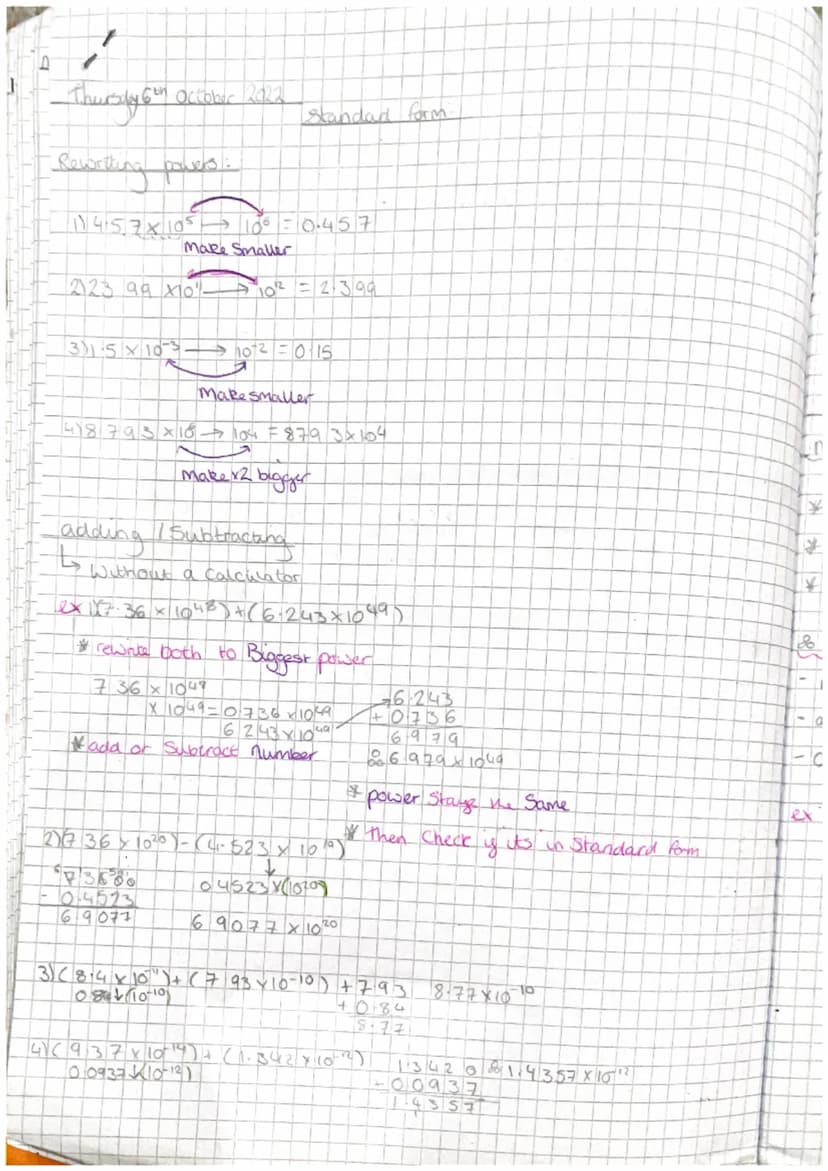 Thursday 6th October 2022
Standard form
Rewriting powers:
1) 4.57 × 10⁵ → 10⁶ = 0.457
Make Smaller
2) 23.99 × 10¹¹ → 10¹² = 2.399
3) 1.5 × 10⁻³ → 10⁻² = 0.15
Make smaller
4) 8.793 × 10 → 10⁴ = 879.3 × 10⁴
Make x2 bigger
adding / Subtracting
↳ Without a calculator
ex 1) (7.36 × 10⁴⁸) + (6.243 × 10⁴⁹)
* rewrite both to Biggest power
7.36 × 10⁴⁸
× 10⁴⁹ = 0.736 × 10⁴⁹
6.243 × 10⁴⁹
6.243
+ 0.736
6.979
* add or Subtract number
∴ 6.979 × 10⁴⁹
* power Stays the Same
* then Check if its in Standard form
2) (7.36 × 10²⁰) - (4.523 × 10¹⁹)
↓
0.4523 × (10²⁰)
- 0.4523
6.9077
6.9077 × 10²⁰
3) (8.4 × 10⁻¹¹) + (7.93 × 10⁻¹⁰) + 7.93 8.77 × 10⁻¹⁰
0.84 (10⁻¹⁰)
+ 0.84
8.77
4) (9.37 × 10⁻¹⁴) + (1.342 × 10⁻¹²) 1.3420 ∴ 1.4357 × 10⁻¹²
0.0937 × (10⁻¹²)
- 0.0937
1.4357
ex